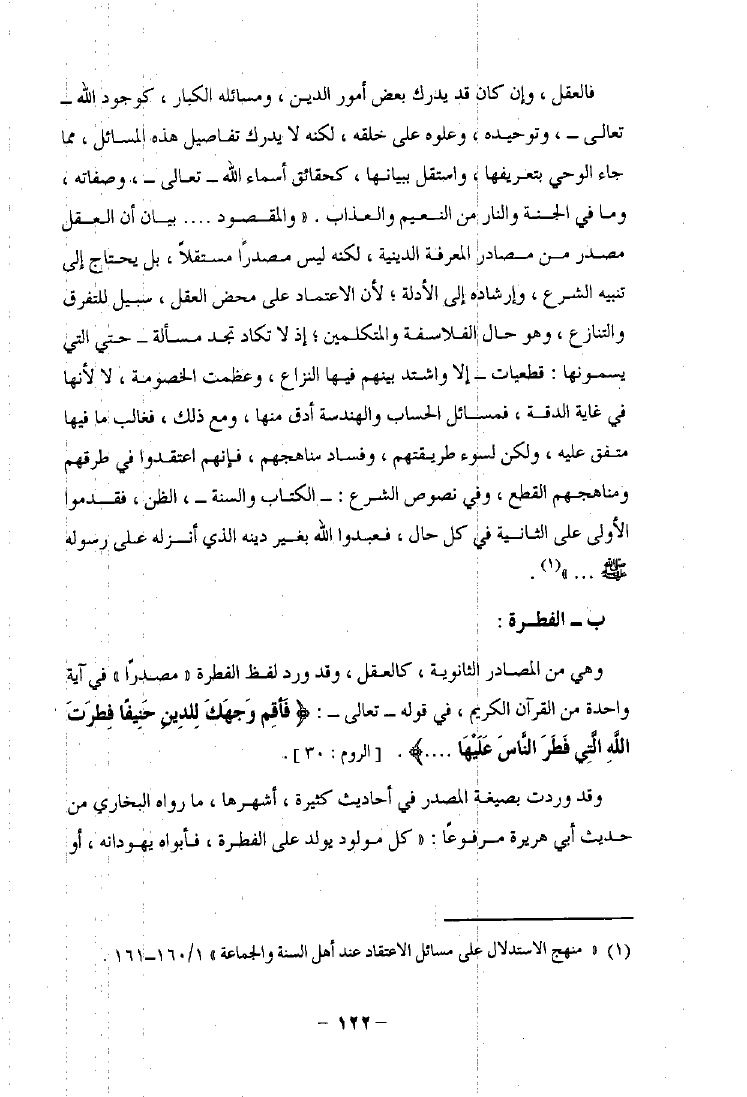 فالعقل ، وإن كان قد يدرك بعض أمور الدين ، ومسائله الكبار ، كوجود الله ــ
تعالى ــ ، وتوحيده ، وعلوه على خلقه ، لكنه لا يدرك تفاصيل هذه المسائل ، مما
جاء الوحي بتعريفها ، واستقل ببيانها ، كحقائق أسماء الله ــ تعالى ــ ، وصفاته ،
وما في الجنة والنار من النعيم والعذاب . « والمقصود .... بيان أن العقل
مصدر من مصادر المعرفة الدينية ، لكنه ليس مصدرًا مستقلاً ، بل يحتاج إلى
تنبيه الشرع ، وإرشاده إلى الأدلة ؛ لأن الاعتماد على محض العقل ، سبيل للتفرق
والتنازع ، وهو حال الفلاسفة والمتكلمين ؛ إذ لا تكاد تجد مسألة ــ حتي التي
يسمونها : قطعيات ــ إلا واشتد بينهم فيها النزاع ، وعظمت الخصومة ، لا لأنها
في غاية الدقة ، فمسائل الحساب والهندسة أدق منها ، ومع ذلك ، فغالب ما فيها
متفق عليه ، ولكن لسوء طريقتهم ، وفساد مناهجهم ، فإنهم اعتقدوا في طرقهم
ومناهجهم القطع ، وفي نصوص الشرع : ــ الكتاب والسنة ــ ، الظن ، فقدموا
الأولى على الثانية في كل حال ، فعبدوا الله بغير دينه الذي أنزله على رسوله
ﷺ ... »(١) .
ب ــ الفطرة :
وهي من المصادر الثانوية ، كالعقل ، وقد ورد لفظ الفطرة « مصدرًا » في آية
واحدة من القرآن الكريم ، في قوله ــ تعالى ــ : ﴿ فَأَقِم وَجهَكَ لِلدِينِ حَنِيفًا فِطرَتَ
اللَّهِ الَّتِي فَطَرَ النَّاسَ عَلَيْهَا ....﴾ . [ الروم : ٣٠ ] .
وقد وردت بصيغة المصدر في أحاديث كثيرة ، أشهرها ، ما رواه البخاري من
حديث أبي هريرة مرفوعًا : « كل مولود يولد على الفطرة ، فأبواه يهودانه ، أو
(١) « منهج الاستدلال على مسائل الاعتقاد عند أهل السنة والجماعة » ١/ ١٦٠ــ١٦١ .
– ١٢٢ –